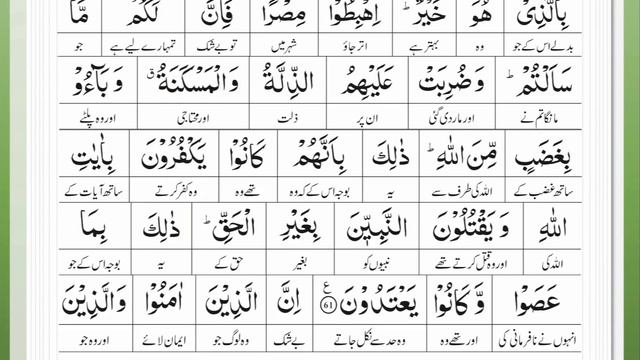 بِالَّذِىْ هُوَ خَيْرٌ ؕ اِهْبِطُوْا مِصْرًا فَاِنَّ لَكُمْ مَّا
بدلے اس کے جو وہ بہتر ہے اتر جاؤ شہر میں تو بے شک تمہارے لیے ہے جو
سَاَلْتُمْ ؕ وَضُرِبَتْ عَلَيْهِمُ الذِّلَّةُ وَالْمَسْكَنَةُ ۗ وَبَآءُوْ
مانگا تم نے اور مار دی گئی ان پر ذلت اور محتاجی اور وہ پلٹے
بِغَضَبٍ مِّنَ اللّٰهِ ؕ ذٰلِكَ بِاَنَّهُمْ كَانُوْا يَكْفُرُوْنَ بِاٰيٰتِ
ساتھ غضب کے اللہ کی طرف سے یہ بوجہ اس کے کہ وہ تھے وہ وہ کفر کرتے ساتھ آیات کے
اللّٰهِ وَيَقْتُلُوْنَ النَّبِيّٖنَ بِغَيْرِ الْحَقِّ ؕ ذٰلِكَ بِمَا
اللہ کی اور وہ قتل کرتے تھے نبیوں کو بغیر حق کے یہ بوجہ اس کے جو
عَصَوْا وَّكَانُوْا يَعْتَدُوْنَ ﴿61﴾ ع اِنَّ الَّذِيْنَ اٰمَنُوْا وَالَّذِيْنَ
انہوں نے نافرمانی کی اور تھے وہ وہ حد سے نکل جاتے بے شک وہ لوگ جو ایمان لائے اور وہ جو